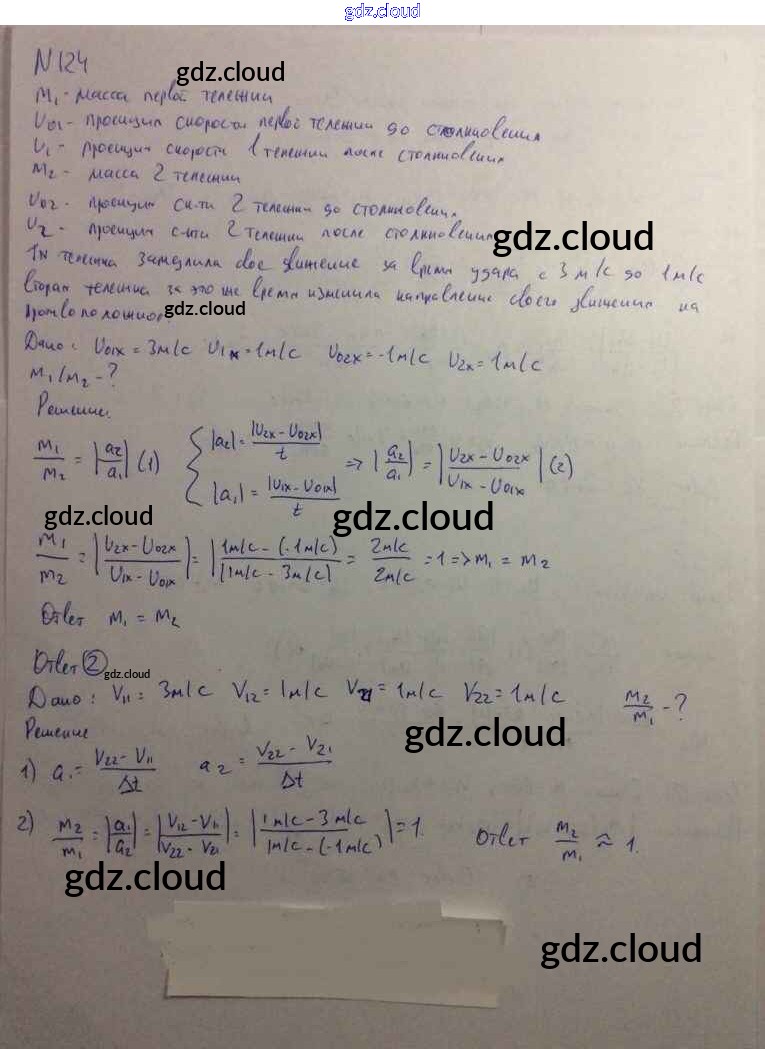 gdz.cloud
N124
gdz.cloud
m₁ - масса первой тележки
υ₀₁ - проекция скорости первой тележки до столкновения
υ₁ - проекция скорости 1 тележки после столкновения
m₂ - масса 2 тележки
υ₀₂ - проекция ск-ти 2 тележки до столкновения
υ₂ - проекция с-ти 2 тележки после столкновения
gdz.cloud
1я тележка замедлила свое движение за время удара с 3 м/с до 1 м/с
вторая тележка за это же время изменила направление своего движения на
противоположное
gdz.cloud
Дано: υ₀₁ₓ = 3м/с υ₁ₓ = 1м/с υ₀₂ₓ = -1м/с υ₂ₓ = 1м/с
m₁/m₂ - ?
Решение.
m₁/m₂ = |a₂/a₁| (1) { |a₂| = |υ₂ₓ - υ₀₂ₓ|/t |a₁| = |υ₁ₓ - υ₀₁ₓ|/t => |a₂/a₁| = |υ₂ₓ - υ₀₂ₓ/υ₁ₓ - υ₀₁ₓ| (2)
gdz.cloud gdz.cloud
m₁/m₂ = |υ₂ₓ - υ₀₂ₓ/υ₁ₓ - υ₀₁ₓ| = |1м/с - (-1м/с)/|1м/с - 3м/с| = 2м/с/2м/с = 1 => m₁ = m₂
Ответ m₁ = m₂
Ответ 2
gdz.cloud
Дано: V₁₁ = 3м/с V₁₂ = 1м/с V₂₁ = 1м/с V₂₂ = 1м/с m₂/m₁ - ?
Решение
gdz.cloud
1) a₁ = V₂₂ - V₁₁/Δt a₂ = V₂₂ - V₂₁/Δt
2) m₂/m₁ = |a₁/a₂| = |V₁₂ - V₁₁/V₂₂ - V₂₁| = |1м/с - 3м/с/1м/с - (-1м/с)| = 1. Ответ m₂/m₁ ≈ 1.
gdz.cloud
gdz.cloud